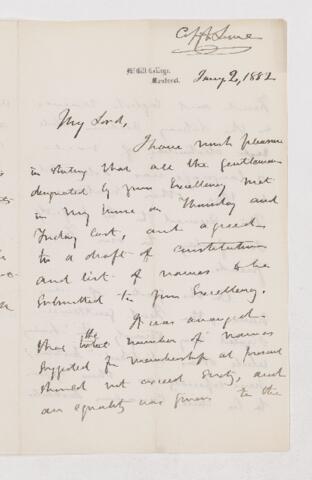 McGill College,
Montreal.
Jany 2, 1882
My Lord,
I have much pleasure
in stating that all the gentlemen
designated by your Excellency met
in my house on Thursday and
Friday last, and agreed
to a draft of constitution
and list of names to be
submitted to your Excellency.
It was arranged
that the number of names
suggested for membership at present
should not exceed sixty, and
an equality was given to the